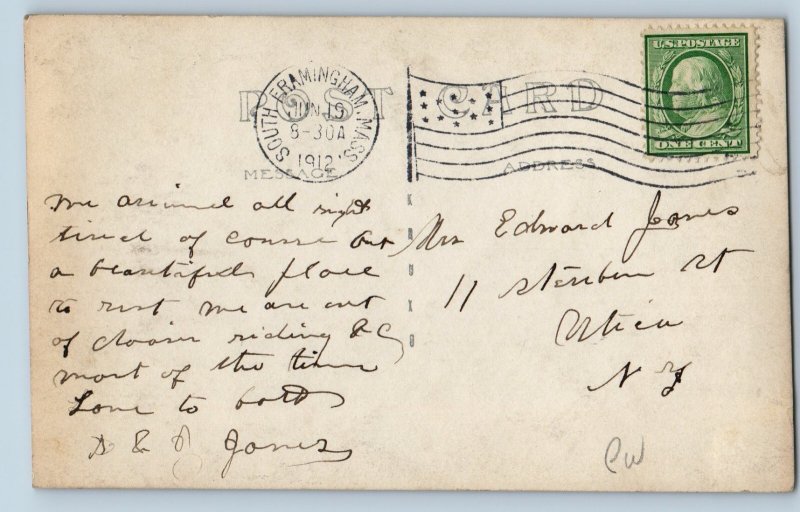 POST CARD
SOUTH FRAMINGHAM, MASS.
JUN 19
8-30A
1912
U.S. POSTAGE
ONE CENT
MESSAGE
ADDRESS
We arrived all right
tired of course but
a beautiful place
to rest we are out
of doors riding &C
most of the time
Love to both
& Jones
Mrs Edward Jones
11 Steuben St
Utica
N Y
KRUXO
CW